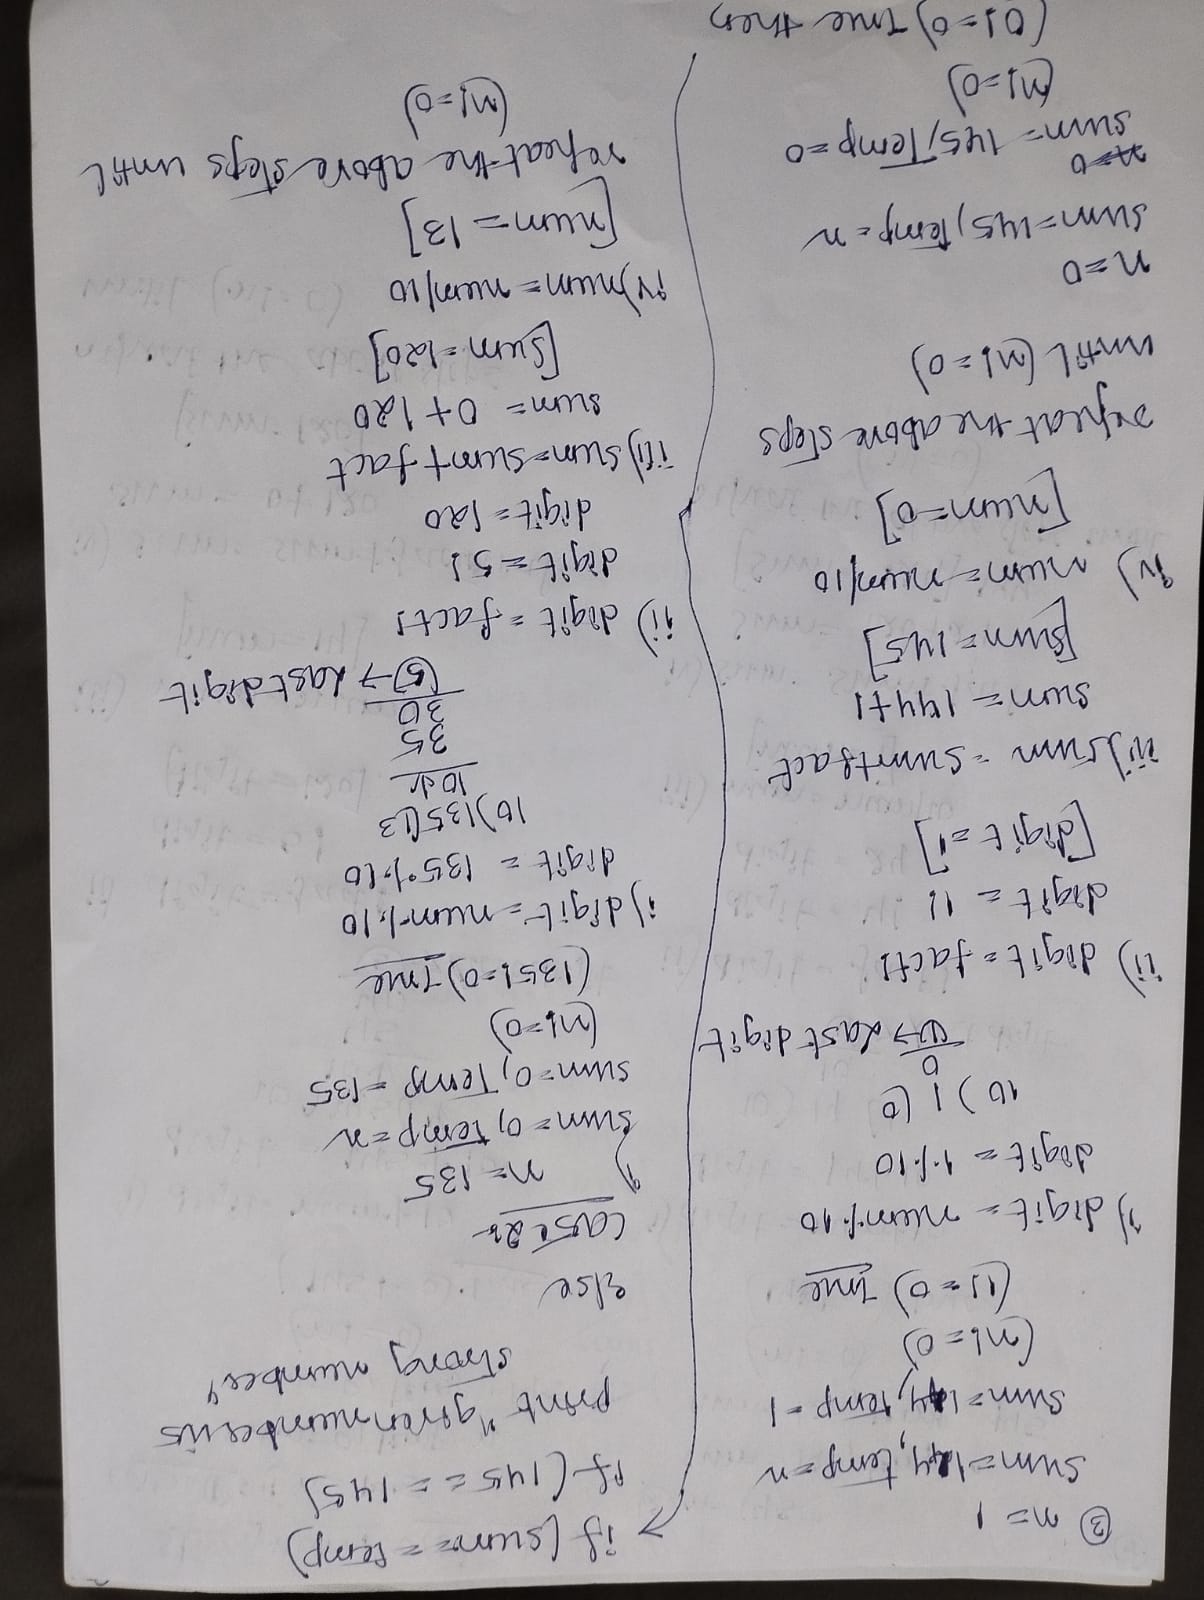 ③ n=1
sum=144, temp=n
sum=144, temp=1
(n!=0)
(1!=0) True
i) digit=num%10
digit=1%10
10) 1 (0
0
1→ Last digit
ii) digit=fact!
digit=1!
[digit=1]
iii) sum=sum+fact
sum=144+1
[sum=145]
iv) num=num/10
[num=0]
repeat the above steps
until (n!=0)
n=0
sum=145, Temp=n
n=0
sum=145, Temp=0
(n!=0)
(0!=0) True then
→ if (sum==temp)
if (145==145)
print "given number is
strong number"
else
case 2:
i) n=135
sum=0, Temp=n
sum=0, Temp=135
(n!=0)
(135!=0) True
i) digit=num%10
digit=135%10
10)135(13
10
35
30
5→ Last digit
ii) digit=fact!
digit=5!
digit=120
iii) sum=sum+fact
sum=0+120
[sum=120]
iv) num=num/10
[num=13]
repeat the above steps until
(n!=0)